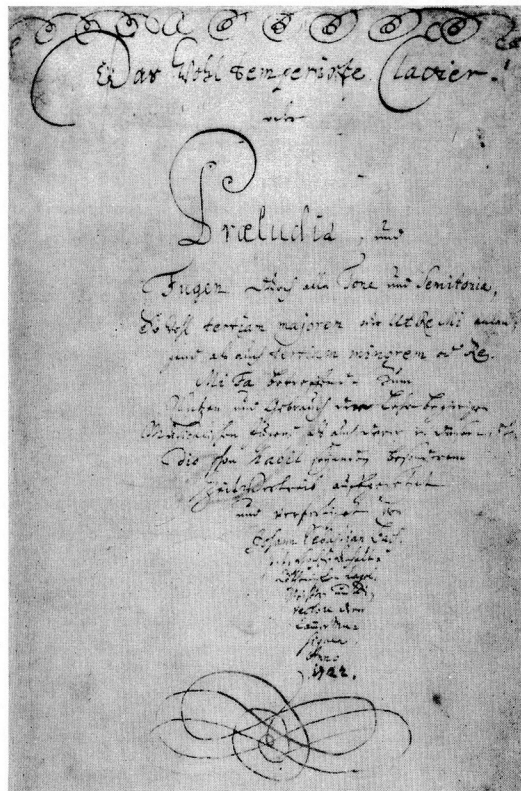 Das Wohltemperirte Clavier.
oder
Præludia, und
Fugen durch alle Tone und Semitonia,
So wohl tertiam majorem oder Ut Re Mi anlan-
gend, als auch tertiam minorem oder Re
Mi Fa betreffend. Zum
Nutzen und Gebrauch der Lehrbegierigen
Musicalischen Jugend, als auch derer in diesem studio
schon habil seyenden besonderem
Zeitvertreib auffgesetzet
und verfertiget von
Johann Sebastian Bach.
p. t: Hochfürstlich Anhalt-
Cöthenischen Capel-
Meistern und Di-
rectore derer
Cammer Mu-
siquen.
Anno
1722.